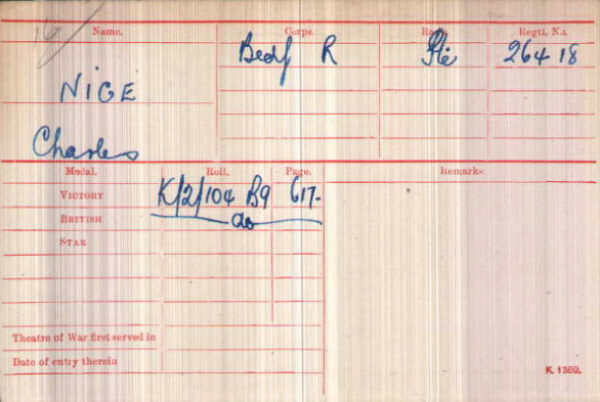 Name. Corps. Rank. Regtl. No.
NICE Bedf R Pte 26418
Charles
Medal. Roll. Page. Remarks
VICTORY K/2/104 B9 617.
BRITISH do
STAR
Theatre of War first served in
Date of entry therein
K. 1380.